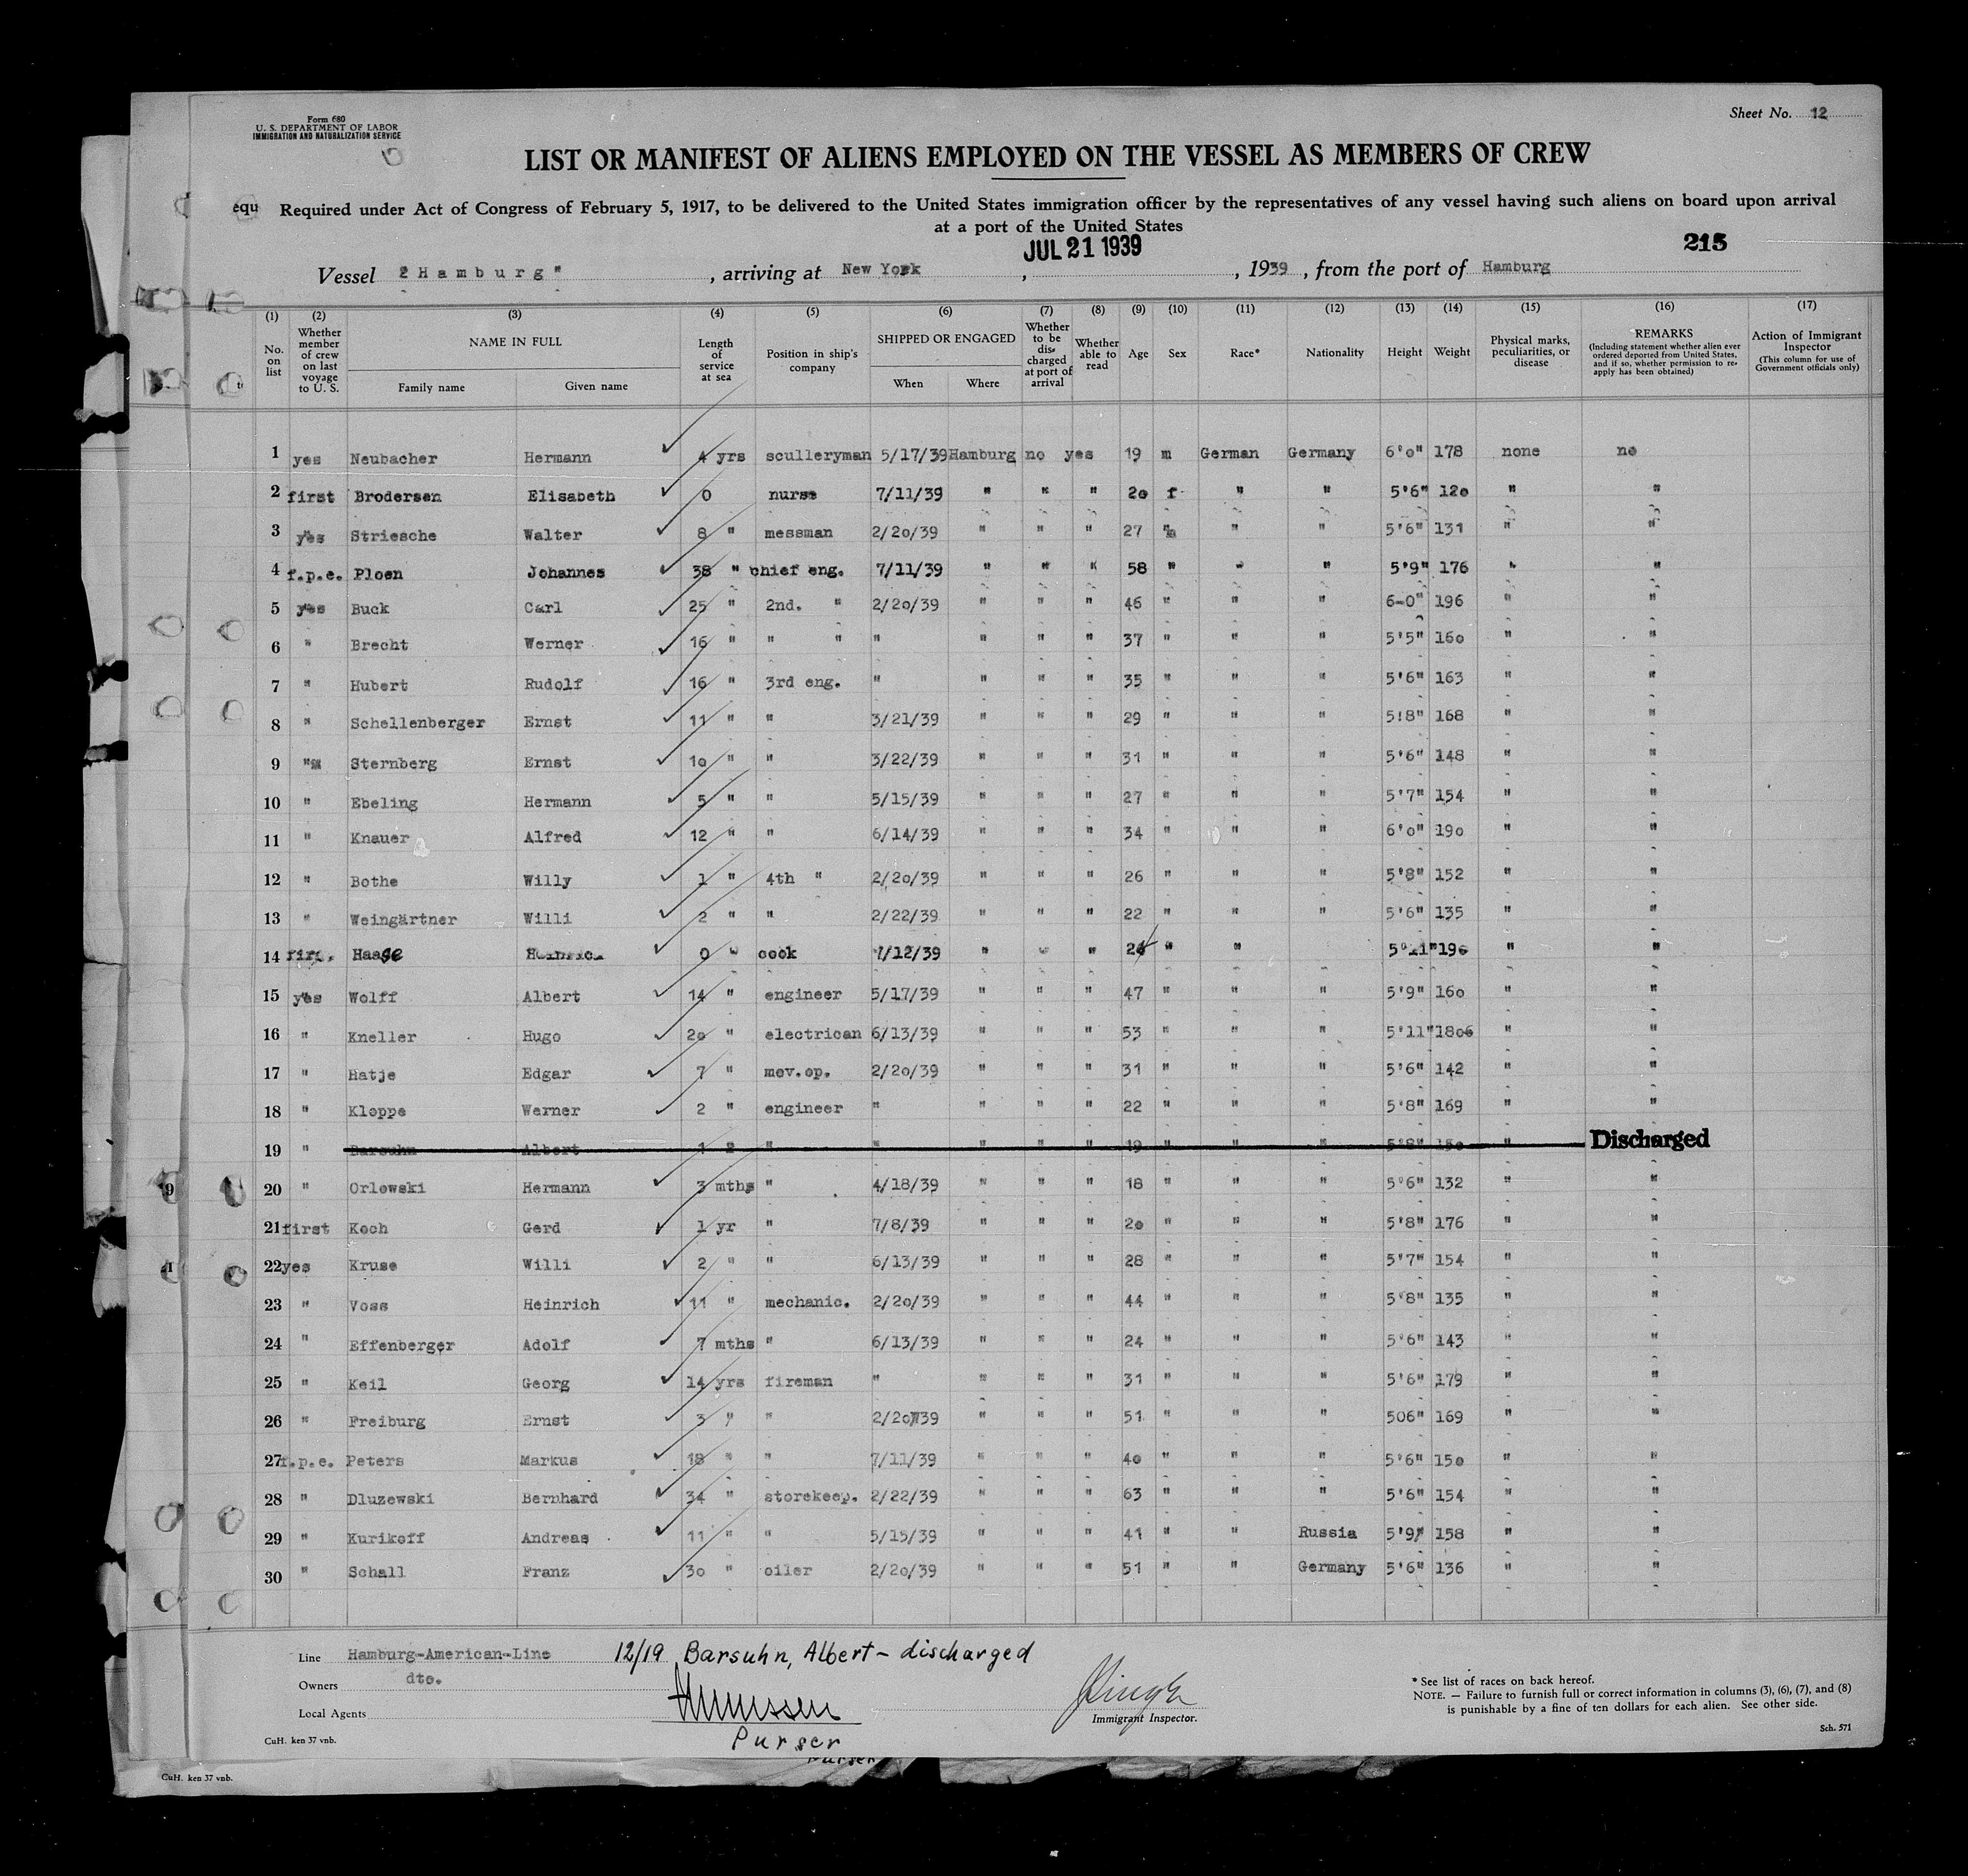 Form 680
U. S. DEPARTMENT OF LABOR
IMMIGRATION AND NATURALIZATION SERVICE
Sheet No. 12
LIST OR MANIFEST OF ALIENS EMPLOYED ON THE VESSEL AS MEMBERS OF CREW
equ Required under Act of Congress of February 5, 1917, to be delivered to the United States immigration officer by the representatives of any vessel having such aliens on board upon arrival
at a port of the United States
JUL 21 1939
215
Vessel "Hamburg", arriving at New York, 1939, from the port of Hamburg
(1) No. on list
(2) Whether member of crew on last voyage to U. S.
(3) NAME IN FULL Family name Given name
(4) Length of service at sea
(5) Position in ship's company
(6) SHIPPED OR ENGAGED When Where
(7) Whether to be discharged at port of arrival
(8) Whether able to read
(9) Age
(10) Sex
(11) Race*
(12) Nationality
(13) Height
(14) Weight
(15) Physical marks, peculiarities, or disease
(16) REMARKS (Including statement whether alien ever ordered deported from United States, and if so, whether permission to re-apply has been obtained)
(17) Action of Immigrant Inspector (This column for use of Government officials only)
1 yes Neubacher Hermann 4 yrs sculleryman 5/17/39 Hamburg no yes 19 m German Germany 6'0" 178 none no
2 first Brodersen Elisabeth 0 nurse 7/11/39 " " " 20 f " " 5'6" 120 " "
3 yes Striesche Walter 8 " messman 2/20/39 " " " 27 m " " 5'6" 131 " "
4 f.p.e. Ploen Johannes 38 " chief eng. 7/11/39 " " " 58 " " " 5'9" 176 " "
5 yes Buck Carl 25 " 2nd. " 2/20/39 " " " 46 " " " 6-0" 196 " "
6 " Brecht Werner 16 " " " " " " " 37 " " " 5'5" 160 " "
7 " Hubert Rudolf 16 " 3rd eng. " " " " 35 " " " 5'6" 163 " "
8 " Schellenberger Ernst 11 " " 3/21/39 " " " 29 " " " 5!8" 168 " "
9 " Sternberg Ernst 10 " " 3/22/39 " " " 31 " " " 5'6" 148 " "
10 " Ebeling Hermann 5 " " 5/15/39 " " " 27 " " " 5'7" 154 " "
11 " Knauer Alfred 12 " " 6/14/39 " " " 34 " " " 6'0" 190 " "
12 " Bothe Willy 1 " 4th " 2/20/39 " " " 26 " " " 5'8" 152 " "
13 " Weingärtner Willi 2 " " 2/22/39 " " " 22 " " " 5'6" 135 " "
14 Haage 0 " cook 7/12/39 " " " " " 5'11" 190 " "
15 yes Wolff Albert 14 " engineer 5/17/39 " " " 47 " " " 5'9" 160 " "
16 " Kneller Hugo 20 " electrican 6/13/39 " " " 53 " " " 5'11" 1806 " "
17 " Hatje Edgar 7 " mov.op. 2/20/39 " " " 31 " " " 5'6" 142 " "
18 " Kloppe Werner 2 " engineer " " " " 22 " " " 5'8" 169 " "
19 " Barsuhn Albert 1 " " " " " " 19 " " " 5'8" 150 " Discharged
20 " Orlowski Hermann 3 mths " 4/18/39 " " " 18 " " " 5'6" 132 " "
21 first Koch Gerd 1 yr " 7/8/39 " " " 20 " " " 5'8" 176 " "
22 yes Kruse Willi 2 " " 6/13/39 " " " 28 " " " 5'7" 154 " "
23 " Voss Heinrich 11 " mechanic. 2/20/39 " " " 44 " " " 5'8" 135 " "
24 " Effenberger Adolf 7 mths " 6/13/39 " " " 24 " " " 5'6" 143 " "
25 " Keil Georg 14 yrs fireman " " " " 31 " " " 5'6" 179 " "
26 " Freiburg Ernst 3 " " 2/20/39 " " " 51 " " " 506" 169 " "
27 f.p.e. Peters Markus 18 " " 7/11/39 " " " 40 " " " 5'6" 150 " "
28 " Dluzewski Bernhard 34 " storekeep. 2/22/39 " " " 63 " " " 5'6" 154 " "
29 " Kurikoff Andreas 11 " " 5/15/39 " " " 41 " " Russia 5'9" 158 " "
30 " Schall Franz 30 " oiler 2/20/39 " " " 51 " " Germany 5'6" 136 " "
Line Hamburg-American-Line
12/19 Barsuhn, Albert - discharged
Owners dto.
Local Agents
Purser
Immigrant Inspector.
* See list of races on back hereof.
NOTE. — Failure to furnish full or correct information in columns (3), (6), (7), and (8)
is punishable by a fine of ten dollars for each alien. See other side.
CuH. ken 37 vnb.
Sch. 571
Purser
CuH. ken 37 vnb.